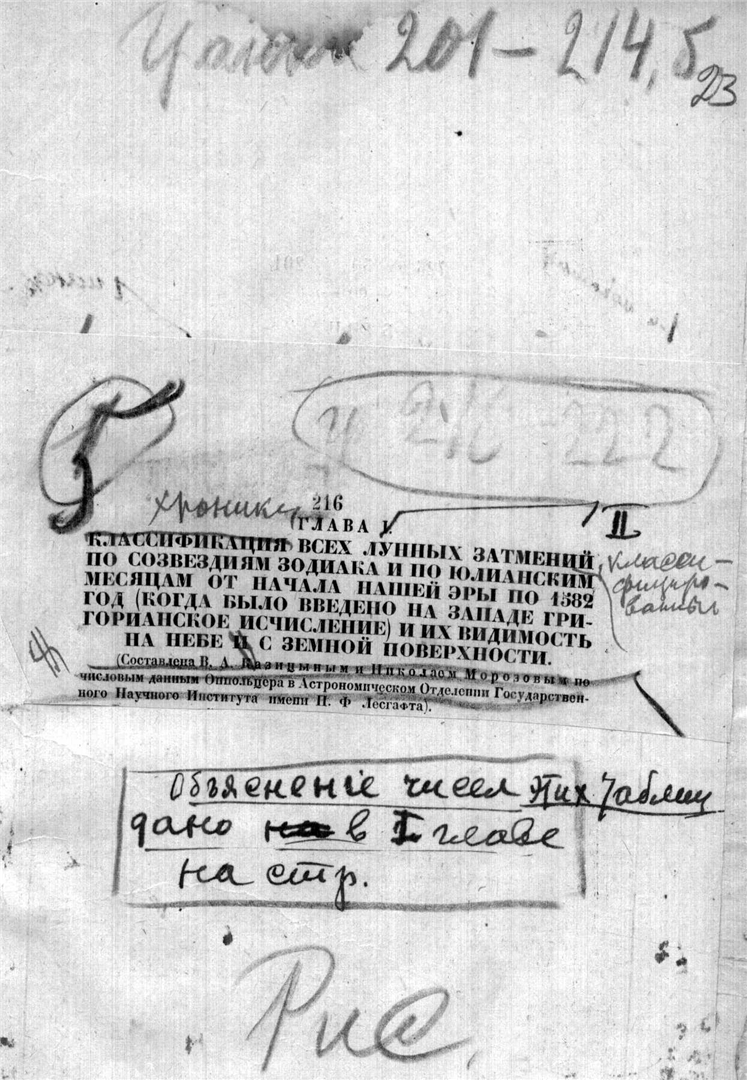 201 – 214, б
23
216 – 222
Хроника
216
ГЛАВА I.
II
КЛАССИФИКАЦИЯ ВСЕХ ЛУННЫХ ЗАТМЕНИЙ
ПО СОЗВЕЗДИЯМ ЗОДИАКА И ПО ЮЛИАНСКИМ
МЕСЯЦАМ ОТ НАЧАЛА НАШЕЙ ЭРЫ ПО 1582
ГОД (КОГДА БЫЛО ВВЕДЕНО НА ЗАПАДЕ ГРИ-
ГОРИАНСКОЕ ИСЧИСЛЕНИЕ) И ИХ ВИДИМОСТЬ
НА НЕБЕ И С ЗЕМНОЙ ПОВЕРХНОСТИ.
класси-
фициро-
ванный
(Составлена В. А. Казицыным и Николаем Морозовым по
числовым данным Оппольцера в Астрономическом Отделении Государствен-
ного Научного Института имени П. Ф Лесгафта).
Объясненіе чисел этих таблиц
дано на в I главе
на стр.
Рис.